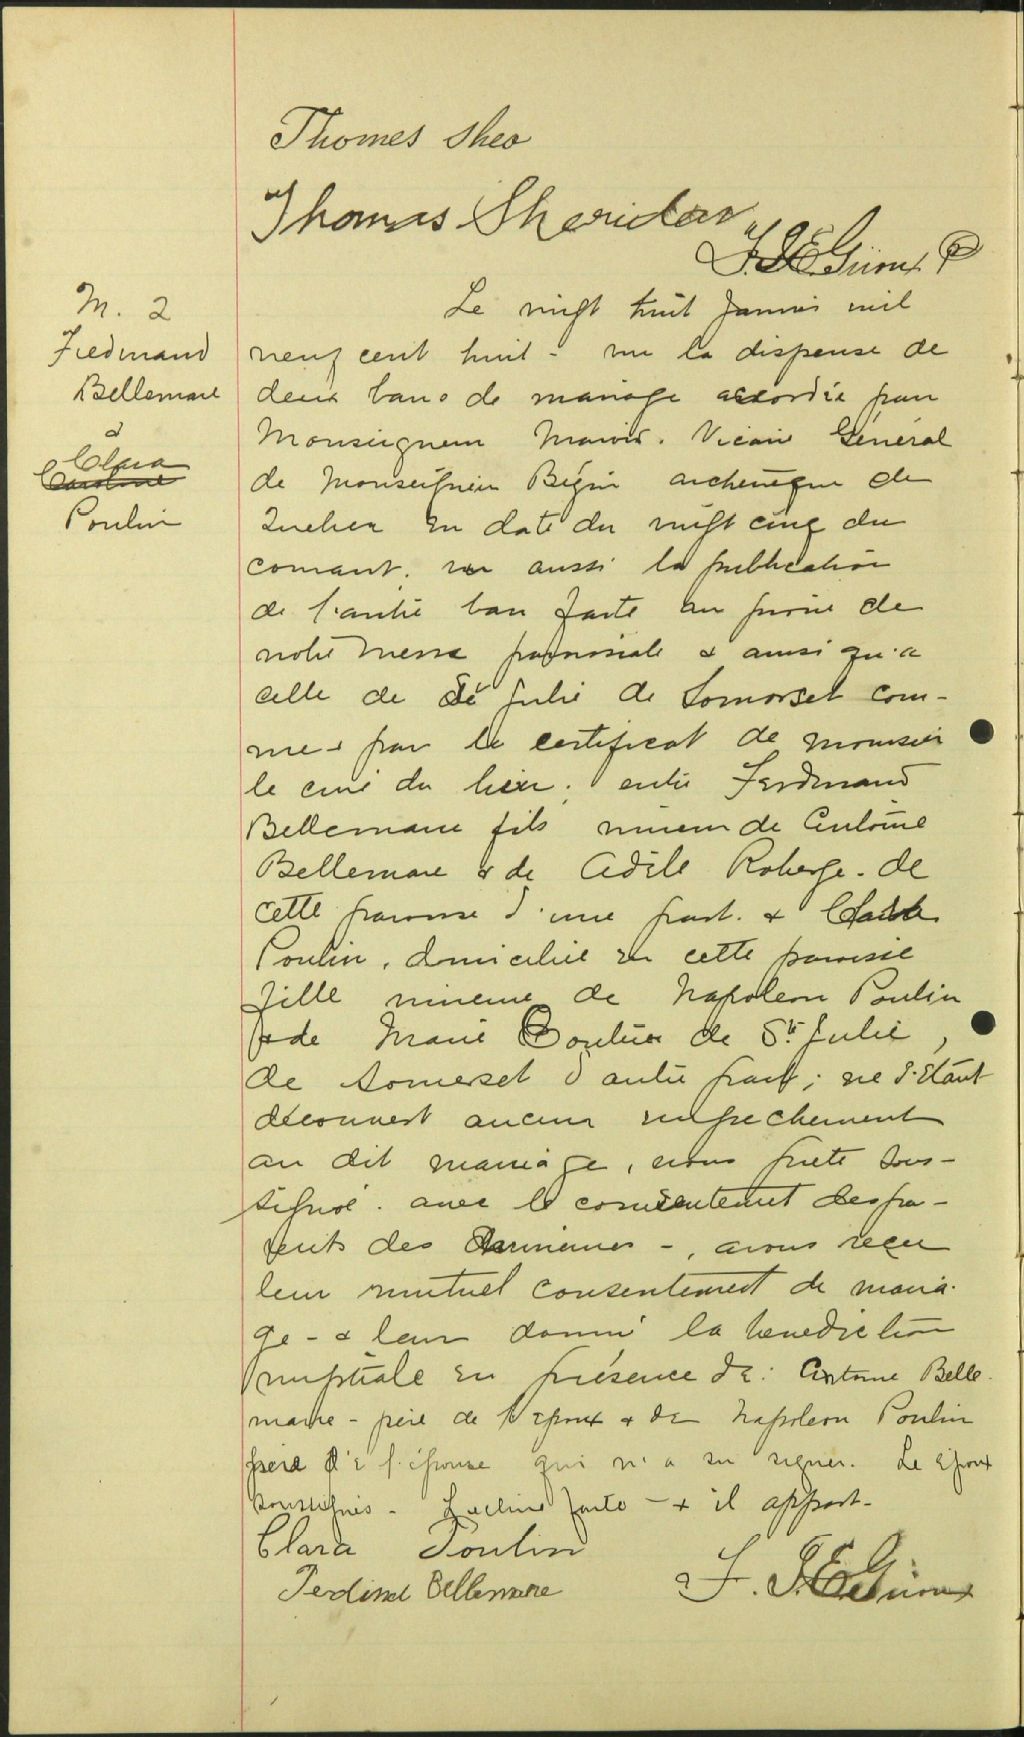 Thomas Shea
Thomas Sheridan
F. J. E. Giroux P
M. 2
Ferdinand
Bellemare
&
Clara
Caroline
Poulin
Le vingt huit Janvier mil
neuf cent huit - vu la dispense de
deux bans de mariage accordée par
Monseigneur Marois. Vicaire Général
de Monseigneur Bégin archevêque de
Quebec en date du vingt cinq du
courant. vu aussi la publication
de l'autre ban faite au prone de
notre messe paroissiale & ainsi qu'a
celle de Ste Julie de Somerset com-
me par le certificat de monsieur
le curé du lieu; entre Ferdinand
Bellemare fils mineur de Antoine
Bellemare & de Adèle Roberge. de
cette paroisse d'une part. & Clara
Poulin, domiciliée en cette paroisse
fille mineure de Napoleon Poulin
& de Marie de Ste Julie,
de Somerset d'autre part; ne s'étant
découvert aucun empechement
au dit mariage, nous prêtre sous-
signé. avec le consentement des pa-
rents des mineurs -, avons reçu
leur mutuel consentement de maria-
ge - & leur donné la benediction
nuptiale en présence de: Antoine Belle-
mare - père de l'époux & de Napoleon Poulin
père de l'épouse qui n'a su signer. Le époux
soussignés - Lecture faite - & il appart-
Clara Poulin
Ferdinad Bellemare
F. J. E. Giroux